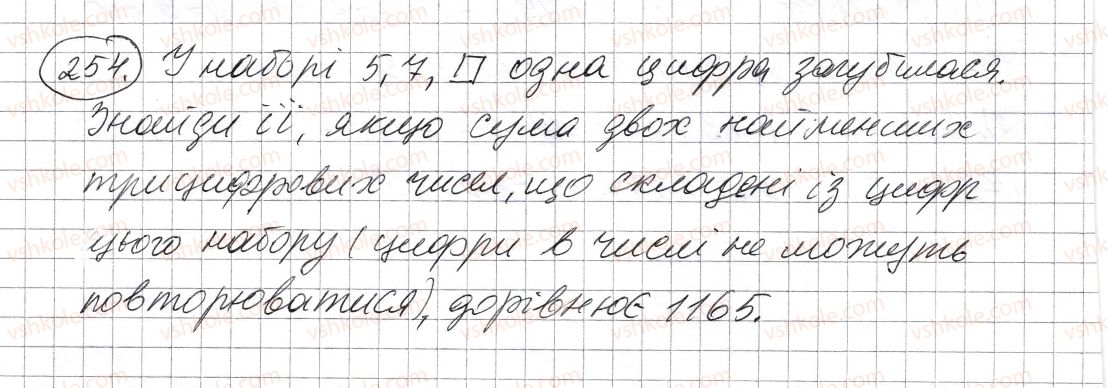 254. У наборі 5, 7, □ одна цифра загубилася.
Знайди її, якщо сума двох найменших
трицифрових чисел, що складені із цифр
цього набору (цифри в числі не можуть
повторюватися), дорівнює 1165.